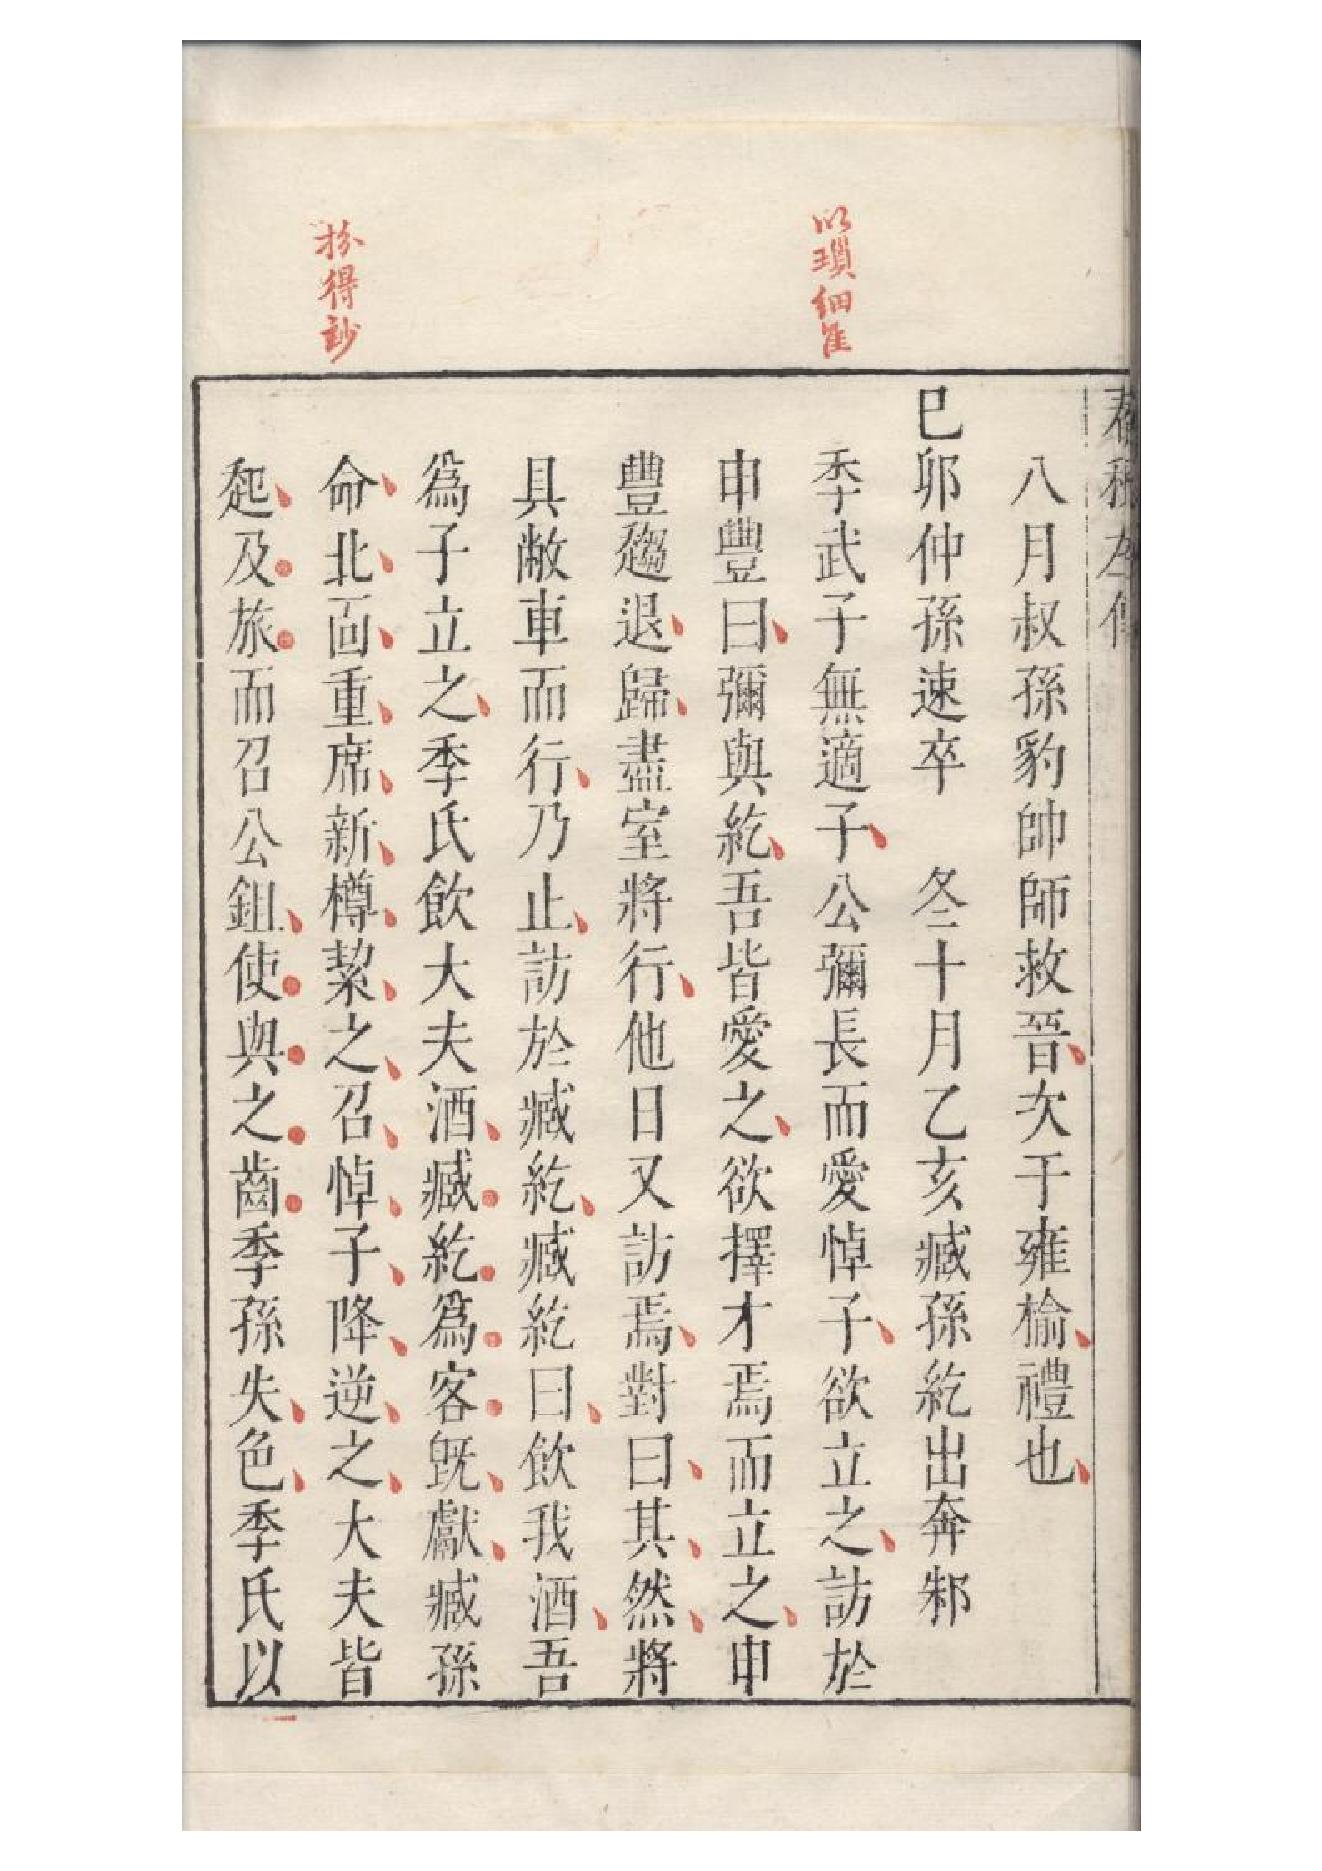 以瑣細雋
扮得妙
春秋左傳
八月叔孫豹帥師救晉次于雍榆禮也
已卯仲孫速卒　冬十月乙亥臧孫紇出奔邾
季武子無適子公彌長而愛悼子欲立之訪於
申豐曰彌與紇吾皆愛之欲擇才焉而立之申
豐趨退歸盡室將行他日又訪焉對曰其然將
具敝車而行乃止訪於臧紇臧紇曰飲我酒吾
為子立之季氏飲大夫酒臧紇為客旣獻臧孫
命北面重席新樽絜之召悼子降逆之大夫皆
起及旅而召公鉏使與之齒季孫失色季氏以